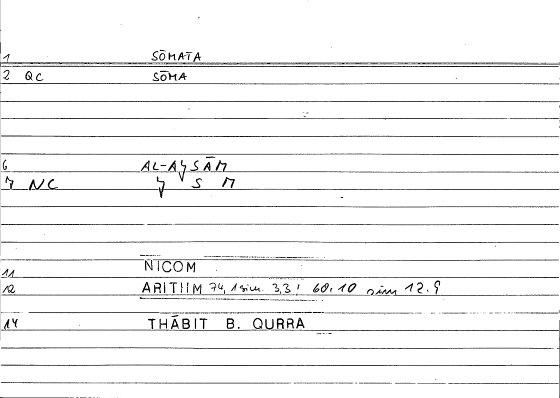 1 SŌMATA
2 QC SŌMA
6 AL-AɣSĀM
7 NC ɣ S M
11 NICOM
12 ARITHM 74,1 sim. 3,3; 60,10 sim 12.9
14 THĀBIT B. QURRA